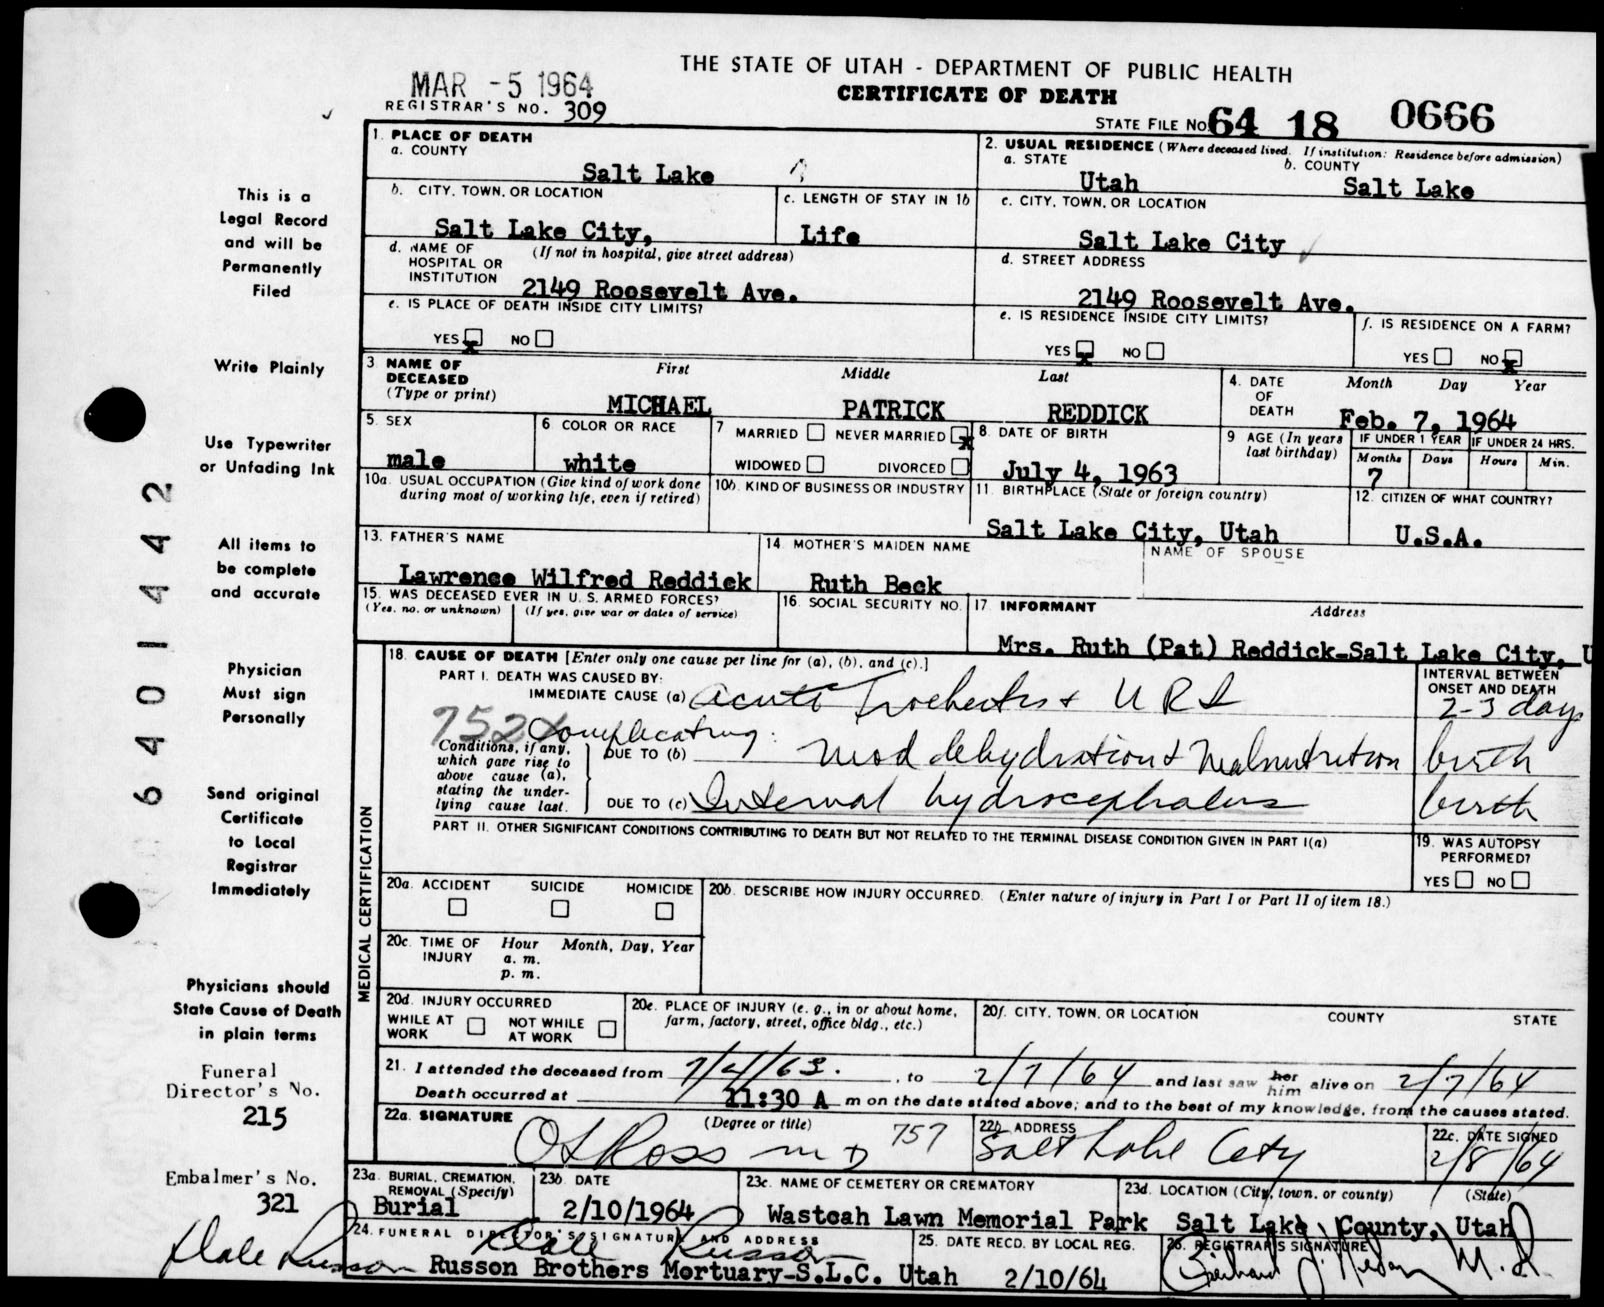 THE STATE OF UTAH - DEPARTMENT OF PUBLIC HEALTH
MAR -5 1964
CERTIFICATE OF DEATH
REGISTRAR'S NO. 309
STATE FILE NO. 64 18 0666
1. PLACE OF DEATH
a. COUNTY
Salt Lake
2. USUAL RESIDENCE (Where deceased lived. If institution: Residence before admission)
a. STATE
Utah
b. COUNTY
Salt Lake
b. CITY, TOWN, OR LOCATION
Salt Lake City,
c. LENGTH OF STAY IN 1b
Life
c. CITY, TOWN, OR LOCATION
Salt Lake City
d. NAME OF HOSPITAL OR INSTITUTION
(If not in hospital, give street address)
2149 Roosevelt Ave.
d. STREET ADDRESS
2149 Roosevelt Ave.
e. IS PLACE OF DEATH INSIDE CITY LIMITS?
YES X NO
e. IS RESIDENCE INSIDE CITY LIMITS?
YES X NO
f. IS RESIDENCE ON A FARM?
YES NO X
3 NAME OF DECEASED (Type or print)
First Middle Last
MICHAEL PATRICK REDDICK
4. DATE OF DEATH
Month Day Year
Feb. 7, 1964
5. SEX
male
6 COLOR OR RACE
white
7 MARRIED NEVER MARRIED X
WIDOWED DIVORCED
8. DATE OF BIRTH
July 4, 1963
9 AGE (In years last birthday)
IF UNDER 1 YEAR IF UNDER 24 HRS.
Months Days Hours Min.
7
10a. USUAL OCCUPATION (Give kind of work done during most of working life, even if retired)
10b. KIND OF BUSINESS OR INDUSTRY
11. BIRTHPLACE (State or foreign country)
Salt Lake City, Utah
12. CITIZEN OF WHAT COUNTRY?
U.S.A.
13. FATHER'S NAME
Lawrence Wilfred Reddick
14. MOTHER'S MAIDEN NAME
Ruth Beck
NAME OF SPOUSE
15. WAS DECEASED EVER IN U. S. ARMED FORCES?
(Yes, no. or unknown) (If yes, give war or dates of service)
16. SOCIAL SECURITY NO.
17. INFORMANT Address
Mrs. Ruth (Pat) Reddick-Salt Lake City, U
18. CAUSE OF DEATH [Enter only one cause per line for (a), (b), and (c).]
PART I. DEATH WAS CAUSED BY:
IMMEDIATE CAUSE (a) acute & URI
752 Complicating:
Conditions, if any, which gave rise to above cause (a), stating the underlying cause last.
DUE TO (b) mod dehydration & Malnutrition
DUE TO (c) Internal hydrocephalus
INTERVAL BETWEEN ONSET AND DEATH
2-3 days
birth
birth
PART II. OTHER SIGNIFICANT CONDITIONS CONTRIBUTING TO DEATH BUT NOT RELATED TO THE TERMINAL DISEASE CONDITION GIVEN IN PART I(a)
19. WAS AUTOPSY PERFORMED?
YES NO
MEDICAL CERTIFICATION
20a. ACCIDENT SUICIDE HOMICIDE
20b. DESCRIBE HOW INJURY OCCURRED. (Enter nature of injury in Part I or Part II of item 18.)
20c. TIME OF INJURY
Hour Month, Day, Year
a. m.
p. m.
20d. INJURY OCCURRED
WHILE AT WORK NOT WHILE AT WORK
20e. PLACE OF INJURY (e. g., in or about home, farm, factory, street, office bldg., etc.)
20f. CITY, TOWN, OR LOCATION COUNTY STATE
21. I attended the deceased from 7/4/63. , to 2/7/64 and last saw her him alive on 2/7/64
Death occurred at 11:30 A m on the date stated above; and to the best of my knowledge, from the causes stated.
22a. SIGNATURE (Degree or title)
OS Ross MD 757
22b. ADDRESS
Salt Lake City
22c. DATE SIGNED
2/8/64
23a. BURIAL, CREMATION, REMOVAL (Specify)
Burial
23b. DATE
2/10/1964
23c. NAME OF CEMETERY OR CREMATORY
Wasatch Lawn Memorial Park
23d. LOCATION (City, town, or county) (State)
Salt Lake County, Utah
24. FUNERAL DIRECTOR'S SIGNATURE AND ADDRESS
Dale Russon
Russon Brothers Mortuary-S.L.C. Utah
25. DATE RECD. BY LOCAL REG.
2/10/64
26. REGISTRAR'S SIGNATURE
M.D.
This is a
Legal Record
and will be
Permanently
Filed
Write Plainly
Use Typewriter
or Unfading Ink
All items to
be complete
and accurate
Physician
Must sign
Personally
Send original
Certificate
to Local
Registrar
Immediately
Physicians should
State Cause of Death
in plain terms
Funeral
Director's No.
215
Embalmer's No.
321
Dale Russon
6401442